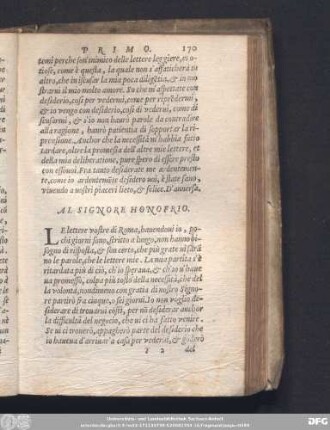 PRIMO. 170
temi perche son'inimico delle lettere leggiere, et o-
tiose, come è questa, la quale non s'affaticherà in
altro, che in iscusar la mia poca diligẽtia, & in mo
strarui il mio molto amore. So che m'aspettate con
desiderio, cosi per vedermi, come per riprẽdermi,
& io vengo con desiderio, cosi di vederui, come di
scusarmi, & s'io non haurò parole da contentarne
alla ragione, haurò patientia di sopportar la ri-
prensione. Anchor che la necessità m'habbia fatto
tardare, oltre la promessa dell'altre mie lettere, et
della mia deliberatione, pure spero di essere presto
con essouoi. Fra tanto desiderate me ardentemen-
te, come io ardentemẽte desidero uoi, & state sano,
viuendo a nostri piaceri lieto, & felice. D'anuersa.
AL SIGNORE HONOFRIO.
LE lettere vostre di Roma, hauendoui io, po-
chi giorni sono, scritto a lungo, non hanno bi-
sogno di risposta, & son certo, che più grate ui sarã
no le parole, che le lettere mie. La mia partita s'è
ritardata più di ciò, ch'io speraua, & ch'io u'haue
ua promesso, colpa più tosto della necessità, che del
la volontà, nondimeno con gratia di nostro Signo-
re partirò fra cinque, o sei giorni. Io non voglio de-
siderare di trouarui costì, per nõ desiderar anchor
la difficultà del negocio, che ui ci ha fatto venire.
Se ui ci trouerò, appagherò parte del desiderio che
io haueua d'arriuar' a casa per vederui, & goderò
Y 2 del